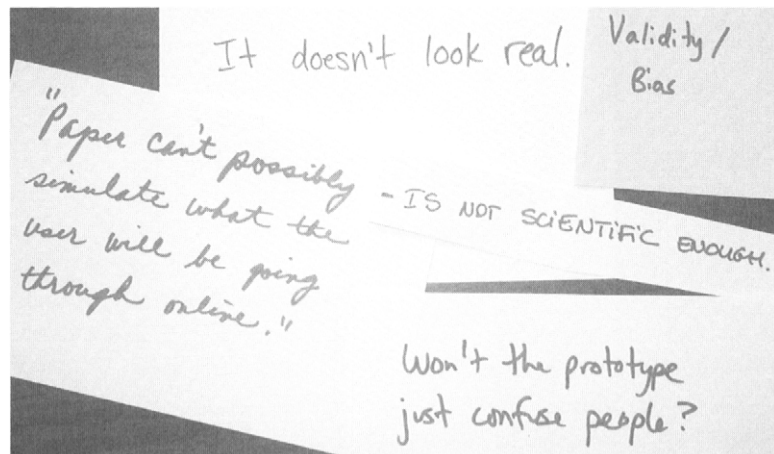 It doesn't look real.
Validity /
Bias
"Paper can't possibly
simulate what the
user will be going
through online."
- IS NOT SCIENTIFIC ENOUGH.
Won't the prototype
just confuse people?